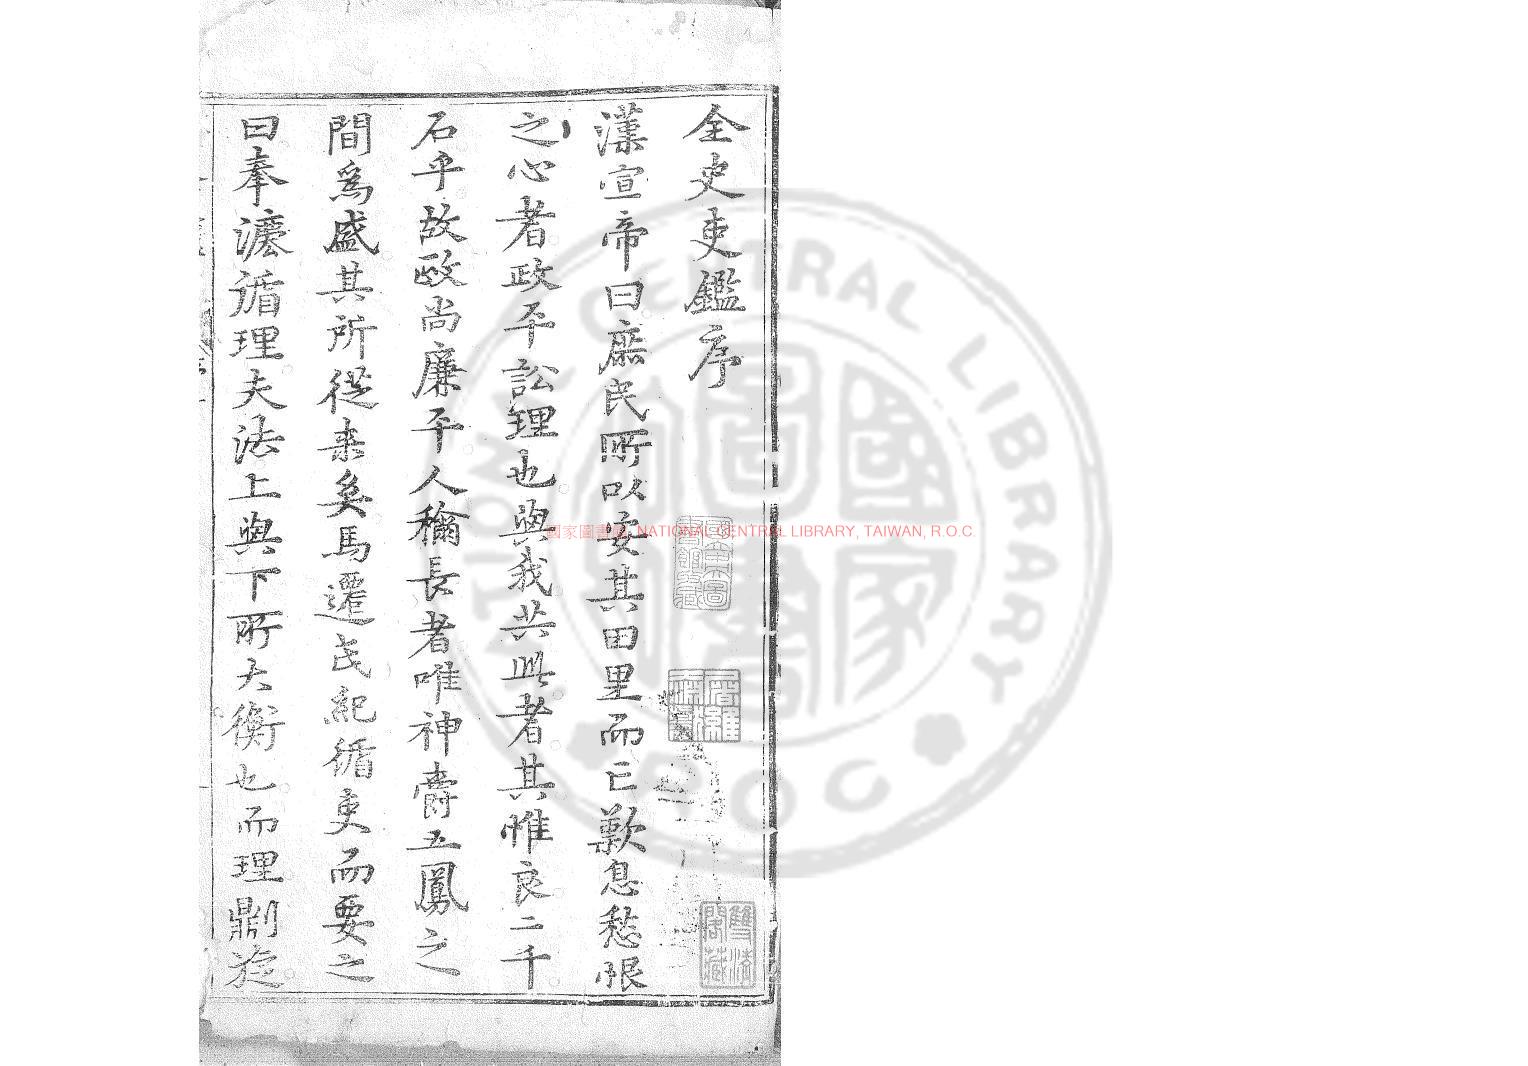 全史吏鑑序
漢宣帝曰庶民所以安其田里而亡歎息愁恨
之心者政平訟理也與我共此者其惟良二千
石乎故政尚廉平人稱長者唯神爵五鳳之
間爲盛其所從来矣馬遷氏紀循吏而要之
曰奉灋循理夫法上與下所大衡也而理劑旋
國家圖書館 NATIONAL CENTRAL LIBRARY, TAIWAN, R.O.C.
NATIONAL CENTRAL LIBRARY
R.O.C.
國家圖書